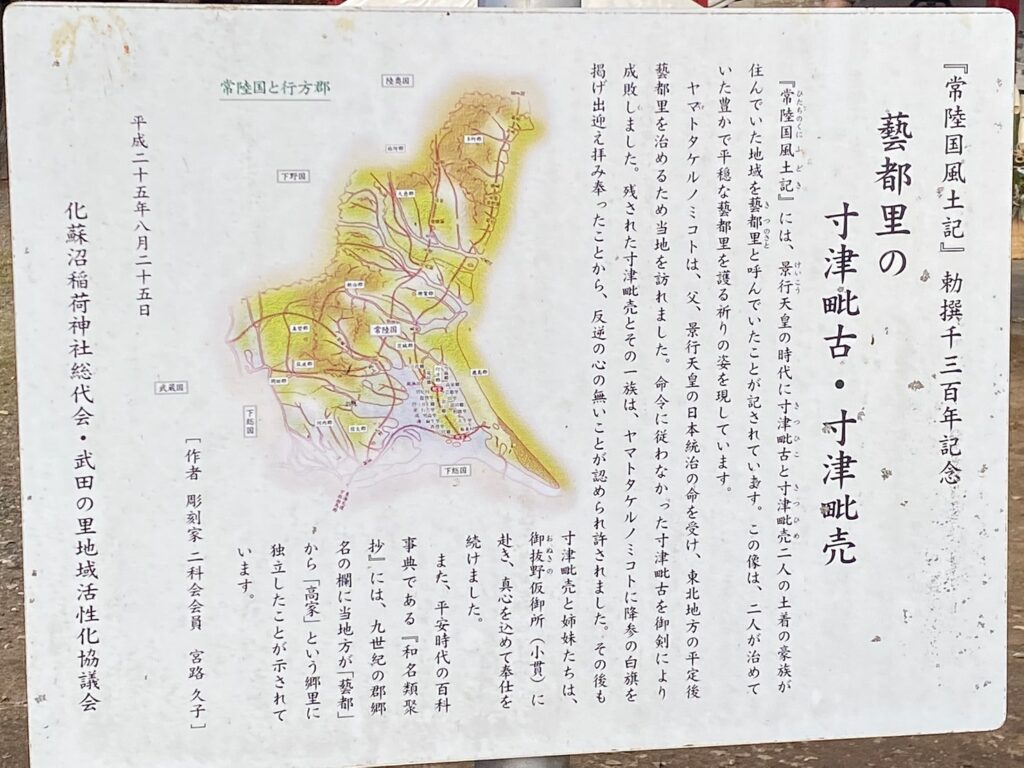 『常陸国風土記』勅撰千三百年記念
藝都里の
寸津毗古・寸津毗売
『常陸国風土記』には、景行天皇の時代に寸津毗古と寸津毗売二人の土着の豪族が
住んでいた地域を藝都里と呼んでいたことが記されています。この像は、二人が治めて
いた豊かで平穏な藝都里を護る祈りの姿を現しています。
ヤマトタケルノミコトは、父、景行天皇の日本統治の命を受け、東北地方の平定後
藝都里を治めるため当地を訪れました。命令に従わなかった寸津毗古を御剣により
成敗しました。残された寸津毗売とその一族は、ヤマトタケルノミコトに降参の白旗を
掲げ出迎え拝み奉ったことから、反逆の心の無いことが認められ許されました。その後も
寸津毗売と姉妹たちは、
御抜野仮御所（小貫）に
赴き、真心を込めて奉仕を
続けました。
また、平安時代の百科
事典である『和名類聚
抄』には、九世紀の郡郷
名の欄に当地方が「藝都」
から「高家」という郷里に
独立したことが示されて
います。
常陸国と行方郡
陸奥国
下野国
多珂郡
久慈郡
那賀郡
新治郡
常陸国
茨城郡
真壁郡
筑波郡
鹿島郡
河内郡
信太郡
武蔵国
下総国
下総国
［作者 彫刻家 二科会会員 宮路 久子］
平成二十五年八月二十五日
化蘇沼稲荷神社総代会・武田の里地域活性化協議会